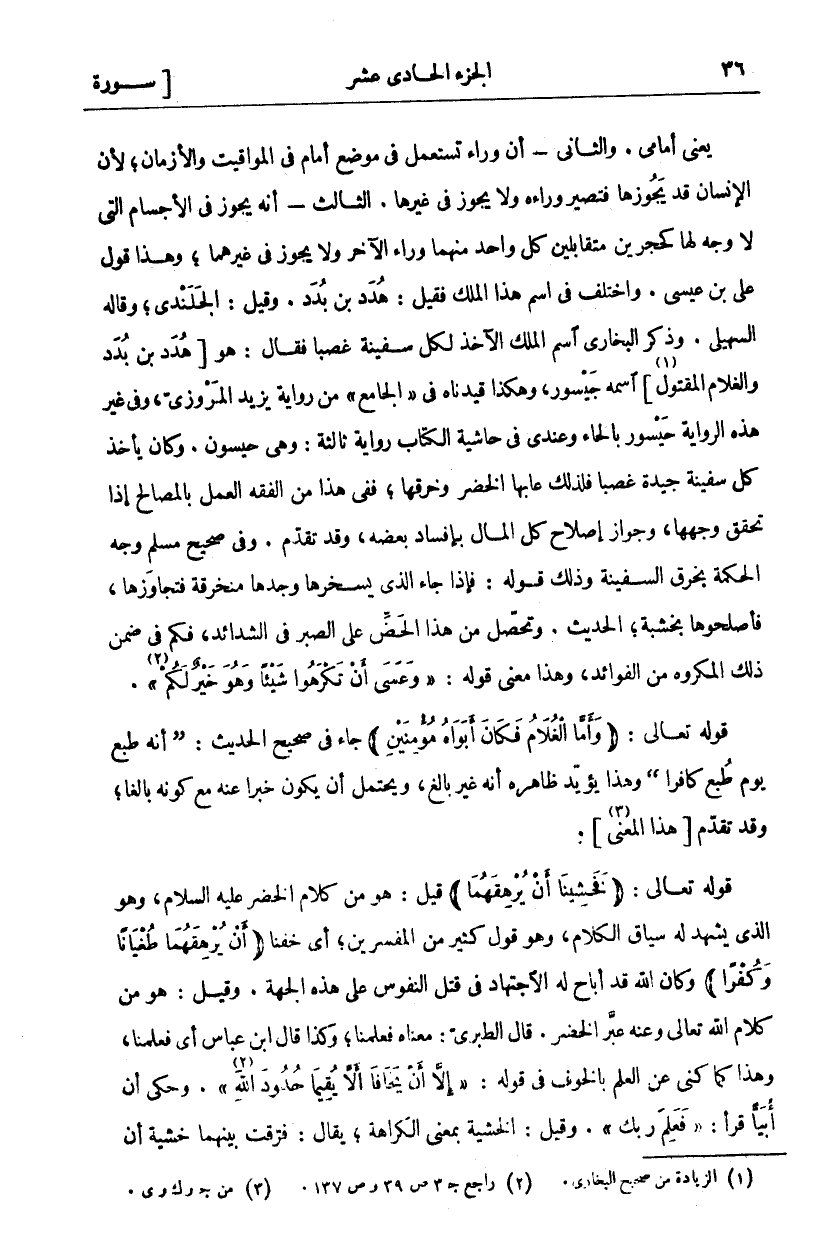 ٣٦ الجزء الحادى عشر [ سورة
يعنى أمامى . والثانى – أن وراء تستعمل فى موضع أمام فى المواقيت والأزمان؛ لأن
الإنسان قد يَجُوزها فتصير وراءه ولا يجوز فى غيرها . الثالث – أنه يجوز فى الأجسام التى
لا وجه لها كحجرين متقابلين كل واحد منهما وراء الآخر ولا يجوز فى غيرهما ؛ وهذا قول
على بن عيسى . واختلف فى اسم هذا الملك فقيل : هُدَد بن بُدَد . وقيل : الجَلَنْدى؛ وقاله
السهيلى . وذكر البخارى آسم الملك الآخذ لكل سفينة غصبا فقال : هو [ هُدَد بن بُدَد
والغلام المقتول(١) ] آسمه جَيْسور، وهكذا قيدناه فى «الجامع» من رواية يزيد المَرْوزىّ، وفى غير
هذه الرواية حَيْسور بالحاء وعندى فى حاشية الكتاب رواية ثالثة : وهى حيسون . وكان يأخذ
كل سفينة جيدة غصبا فلذلك عابها الخضر وخرقها ؛ ففى هذا من الفقه العمل بالمصالح إذا
تحقق وجهها، وجواز إصلاح كل المال بإفساد بعضه، وقد تقدّم . وفى صحيح مسلم وجه
الحكمة بخرق السفينة وذلك قوله : فإذا جاء الذى يسخرها وجدها منخرقة فتجاوَزها ،
فأصلحوها بخشبة؛ الحديث . وتحصّل من هذا الحَضِّ على الصبر فى الشدائد، فكم فى ضمن
ذلك المكروه من الفوائد، وهذا معنى قوله : « وَعَسَى أَنْ تَكْرَهُوا شَيْئًا وَهُوَ خَيْرٌ لَكُمْ(٢) » .
قوله تعالى : ﴿ وَأَمَّا الْغُلَامُ فَكَانَ أَبَوَاهُ مُؤْمِنَيْنِ ﴾ جاء فى صحيح الحديث : ”أنه طبع
يوم طُبع كافرا“ وهذا يؤيّد ظاهره أنه غير بالغ، ويحتمل أن يكون خبرا عنه مع كونه بالغا؛
وقد تقدّم [ هذا المعنى(٣) ] :
قوله تعالى : ﴿ فَخَشِينَا أَنْ يُرْهِقَهُمَا ﴾ قيل : هو من كلام الخضر عليه السلام، وهو
الذى يشهد له سياق الكلام، وهو قول كثير من المفسرين؛ أى خفنا ﴿ أَنْ يُرْهِقَهُمَا طُغْيَانًا
وَكُفْرًا ﴾ وكان الله قد أباح له الآجتهاد فى قتل النفوس على هذه الجهة . وقيل : هو من
كلام الله تعالى وعنه عبَّر الخضر . قال الطبرىّ : معناه فعلمنا؛ وكذا قال ابن عباس أى فعلمنا،
وهذا كما كنى عن العلم بالخوف فى قوله : « إِلَّا أَنْ يَخَافَا أَلَّا يُقِيمَا حُدُودَ اللهِ(٢) » . وحكى أن
أُبَيًّا قرأ : « فَعَلِمَ ربك » . وقيل : الخشية بمعنى الكراهة ؛ يقال : فرّقت بينهما خشية أن
(١) الزيادة من صحيح البخارى. (٢) راجع جـ ٣ ص ٣٩ و ص ١٣٧ . (٣) من جـ و ك و ى .